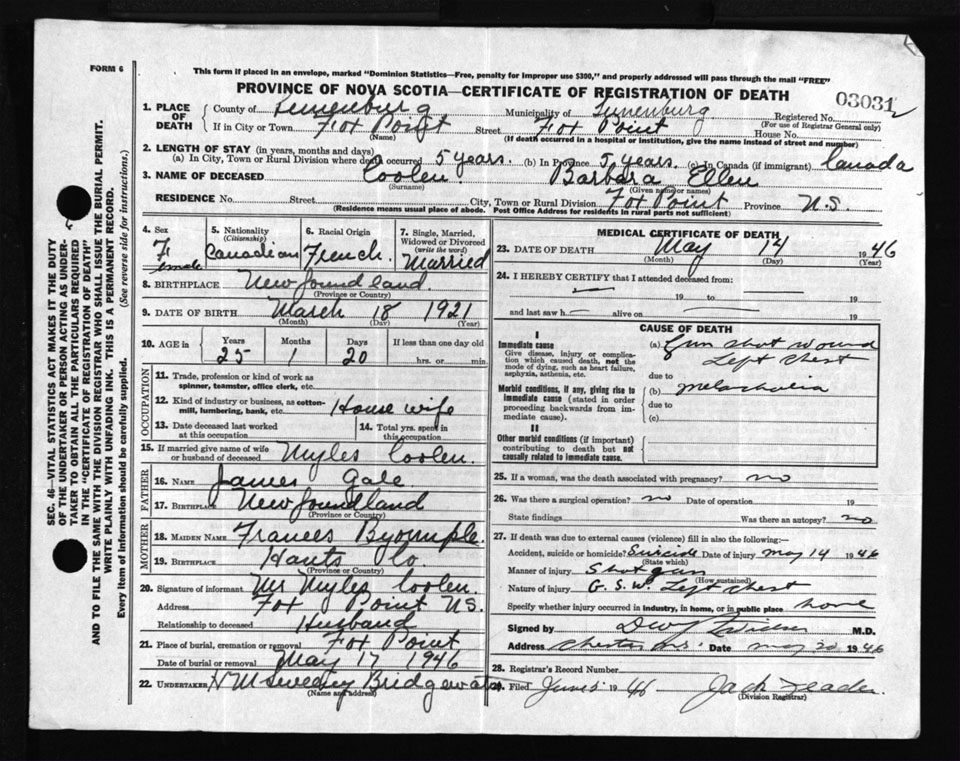 FORM 6
This form if placed in an envelope, marked "Dominion Statistics—Free, penalty for improper use $300," and properly addressed will pass through the mail "FREE"
PROVINCE OF NOVA SCOTIA—CERTIFICATE OF REGISTRATION OF DEATH
03031
1. PLACE OF DEATH County of Lunenburg Municipality of Lunenburg Registered No.
(For use of Registrar General only)
If in City or Town Fox Point Street Fox Point House No.
(Name) (If death occurred in a hospital or institution, give the name instead of street and number)
2. LENGTH OF STAY (in years, months and days)
(a) In City, Town or Rural Division where death occurred 5 years. (b) In Province 5 years. (c) In Canada (if immigrant) Canada
3. NAME OF DECEASED Coolen. Barbara Ellen
(Surname) (Given name or names)
RESIDENCE No. Street City, Town or Rural Division Fox Point Province N.S.
(Residence means usual place of abode. Post Office Address for residents in rural parts not sufficient)
4. Sex Female
5. Nationality (Citizenship) Canadian
6. Racial Origin French.
7. Single, Married, Widowed or Divorced (write the word) Married
8. BIRTHPLACE Newfoundland
(Province or Country)
9. DATE OF BIRTH March 18 1921
(Month) (Day) (Year)
10. AGE in Years Months Days If less than one day old
25 1 20 hrs. or min.
OCCUPATION
11. Trade, profession or kind of work as spinner, teamster, office clerk, etc.
12. Kind of industry or business, as cotton-mill, lumbering, bank, etc. House wife
13. Date deceased last worked at this occupation
14. Total yrs. spent in this occupation
15. If married give name of wife or husband of deceased Myles Coolen.
FATHER
16. NAME James Gale
17. BIRTHPLACE Newfoundland
(Province or Country)
MOTHER
18. MAIDEN NAME Frances
19. BIRTHPLACE Hants Co.
(Province or Country)
20. Signature of informant Mr Myles Coolen.
Address Fox Point N.S.
Relationship to deceased Husband
21. Place of burial, cremation or removal Fox Point
Date of burial or removal May 17 1946
22. UNDERTAKER Sweeny Bridgewater
(Name and address)
MEDICAL CERTIFICATE OF DEATH
23. DATE OF DEATH May 14 1946
(Month) (Day) (Year)
24. I HEREBY CERTIFY that I attended deceased from
19 to 19
and last saw h alive on 19
CAUSE OF DEATH
I
Immediate cause
Give disease, injury or complication which caused death, not the mode of dying, such as heart failure, asphyxia, asthenia, etc.
(a) Gun shot wound
Left chest
due to
Morbid conditions, if any, giving rise to immediate cause (stated in order proceeding backwards from immediate cause).
(b) melancholia
due to
(c)
II
Other morbid conditions (if important) contributing to death but not causally related to immediate cause.
25. If a woman, was the death associated with pregnancy? no
26. Was there a surgical operation? no Date of operation 19
State findings Was there an autopsy? no
27. If death was due to external causes (violence) fill in also the following:
Accident, suicide or homicide? Suicide Date of injury May 14 1946
(State which)
Manner of injury Shot gun
(How sustained)
Nature of injury G.S.W. Left chest
Specify whether injury occurred in industry, in home, or in public place home
Signed by M.D.
Address Chester N.S. Date May 20 1946
28. Registrar's Record Number
29. Filed June 5 1946 Jack
(Division Registrar)
SEC. 46—VITAL STATISTICS ACT MAKES IT THE DUTY
OF THE UNDERTAKER OR PERSON ACTING AS UNDER-
TAKER TO OBTAIN ALL THE PARTICULARS REQUIRED
IN THE "CERTIFICATE OF REGISTRATION OF DEATH"
AND TO FILE THE SAME WITH THE DIVISION REGISTRAR WHO SHALL ISSUE THE BURIAL PERMIT.
WRITE PLAINLY WITH UNFADING INK. THIS IS A PERMANENT RECORD.
Every item of information should be carefully supplied. (See reverse side for instructions.)